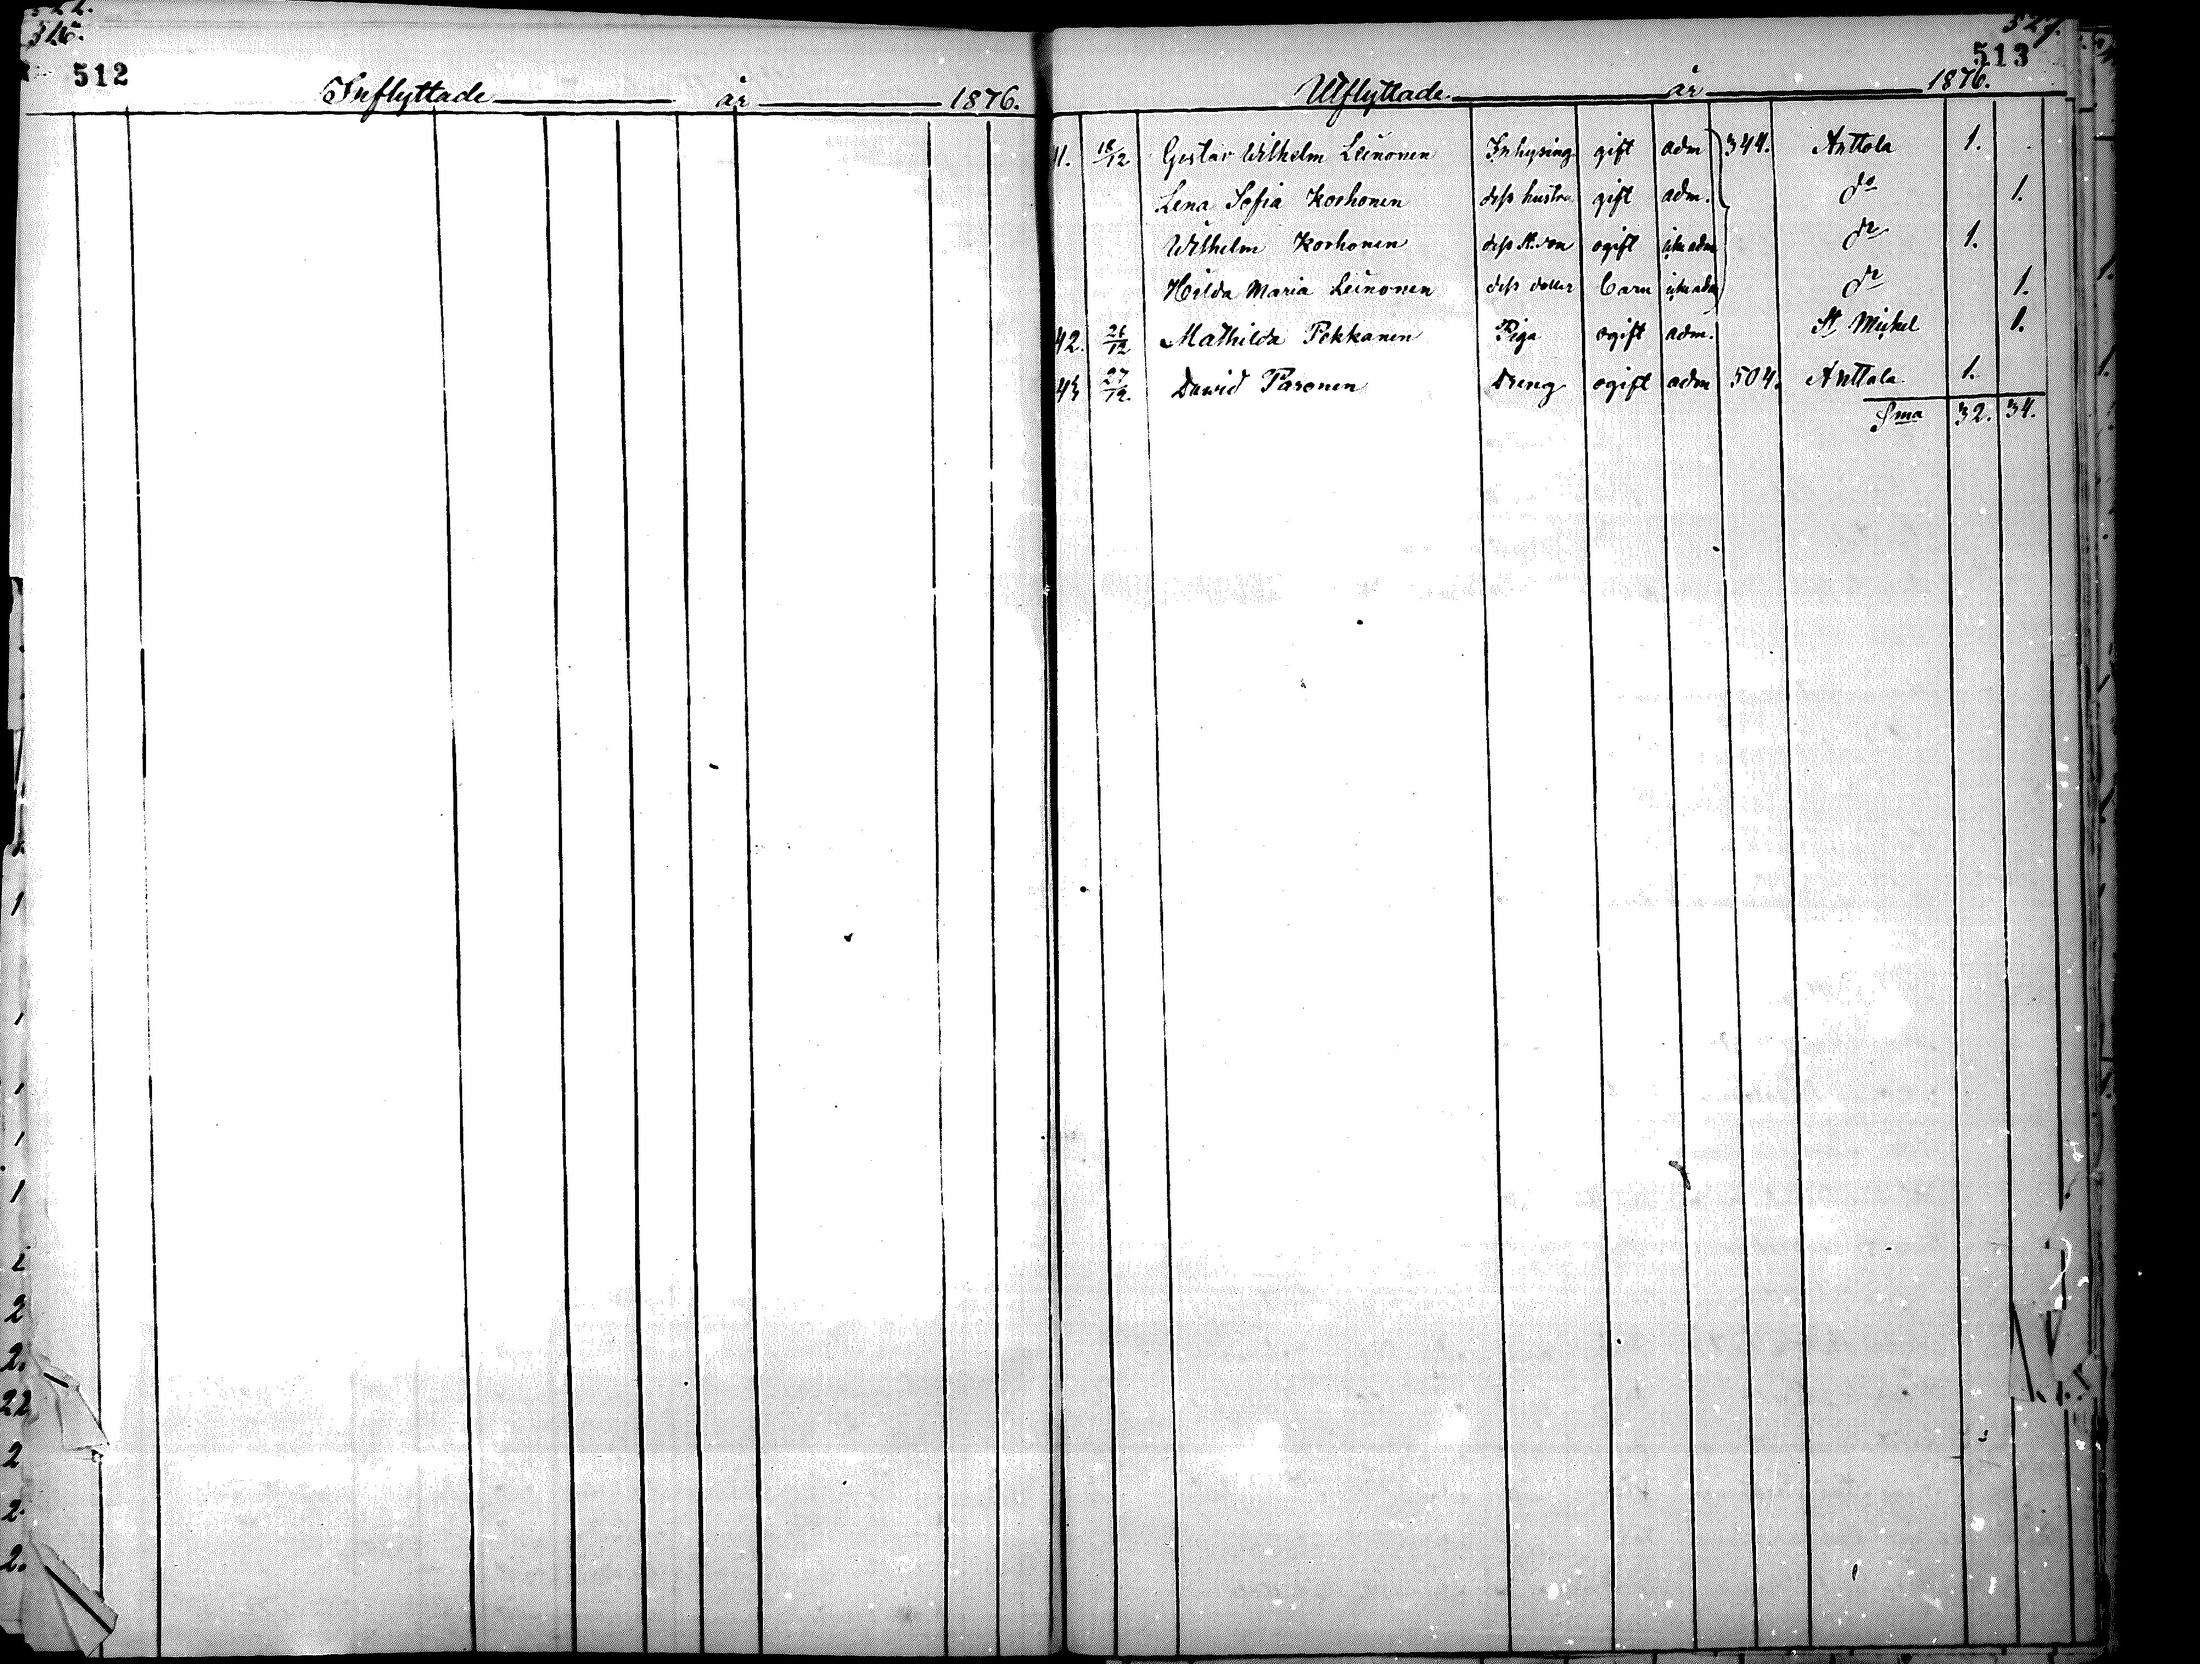 326.
512
Inflyttade år 1876.
327.
513
Utflyttade år 1876.
41. 18/12 Gustav Wilhelm Leinonen Inhysing gift adm 344. Anttola 1.
Lena Sofia Korhonen dess hustru gift adm. do 1.
Wilhelm Korhonen dess st. son ogift icke adm do 1.
Hilda Maria Leinonen dess dotter barn icke adm do 1.
42. 21/12 Mathilda Pekkanen Piga ogift adm. St Michel 1.
43 27/12. David Paronen Dreng ogift adm 504. Anttola 1.
Sma 32. 34.